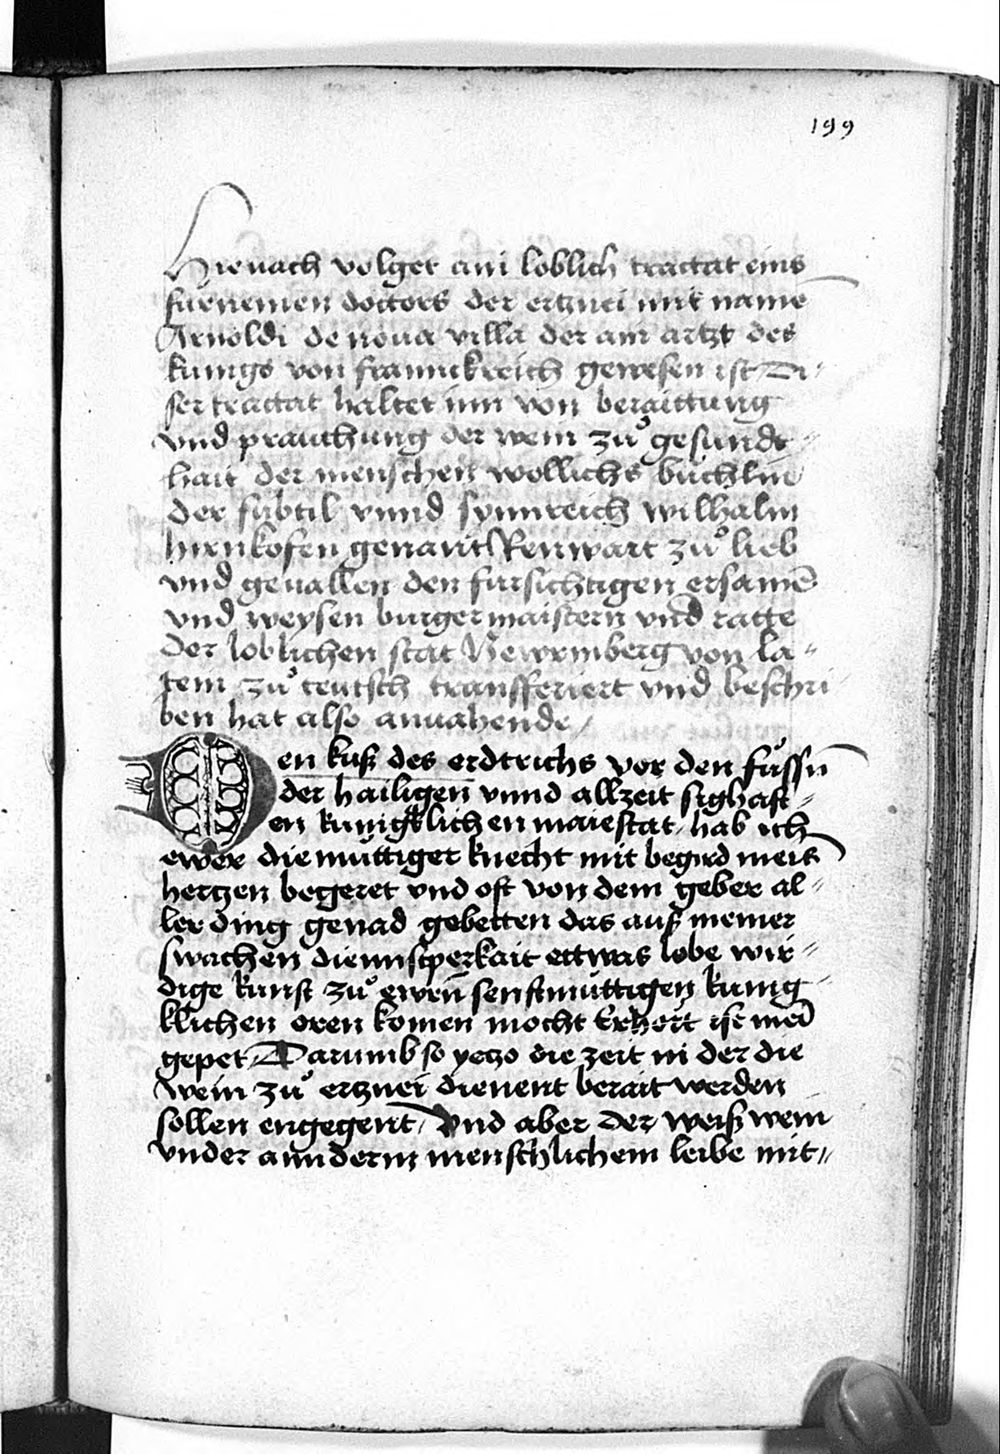 199
Hienach volget ain loblich tractat eins
fürnemen doctors der ertznei mit namē
Arnoldi de noua villa der ain artzt des
kunigs von frannckreich gewesen ist Di⸗
ser tractat haltet inn von beraittung
vnd prauchung der wein zuͦ gesundt⸗
hait der menschen wöllichs büchlin
der subtil vnnd synnreich wilhalm
hirnkofen genant Renwart zuͦ lieb
vnd geuallen den fursichtigen ersamē
vnd weysen burgermaistern vnd ratte
der loblichen stat Newrmberg von la⸗
tein zuͦ teutsch transsferiert vnd beschri
ben hat also anuahende
Den kuß des erdtrichs vor den fuͤssn̄
der hailigen vnnd allzeit sighaft⸗
en kunigklichen maiestat hab ich
ewer diemüttiger knecht mit begird meis
hertzen begeret vnd oft von dem geber al⸗
ler ding genad gebetten das auß meiner
swachen diennstperkait ettwas lobe wir⸗
dige kunst zuͦ ewrn̄ senftmüttigen kunig⸗
klichen oren komen mocht Erhört ist mei̅
gepet Darumb so yetzo die zeit in der die
wein zuͦ ertznei dienent berait werden
sollen engegent Vnd aber der weiß wein
vnder anndernn menschlichem leibe mit⸗